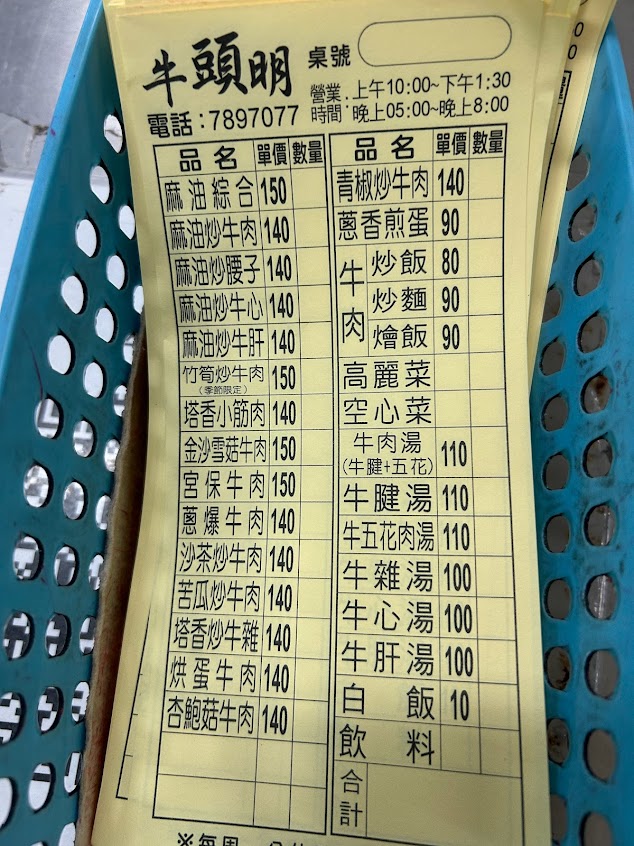 牛頭明
桌號
營業時間：上午10:00~下午1:30
晚上05:00~晚上8:00
電話：7897077
品名 單價 數量
麻油綜合 150
麻油炒牛肉 140
麻油炒腰子 140
麻油炒牛心 140
麻油炒牛肝 140
竹筍炒牛肉 150
(季節限定)
塔香小筋肉 140
金沙雪菇牛肉 150
宮保牛肉 150
蔥爆牛肉 140
沙茶炒牛肉 140
苦瓜炒牛肉 140
塔香炒牛雜 140
烘蛋牛肉 140
杏鮑菇牛肉 140
品名 單價 數量
青椒炒牛肉 140
蔥香煎蛋 90
牛肉
炒飯 80
炒麵 90
燴飯 90
高麗菜
空心菜
牛肉湯 110
(牛腱+五花)
牛腱湯 110
牛五花肉湯 110
牛雜湯 100
牛心湯 100
牛肝湯 100
白飯 10
飲料
合計
※每周